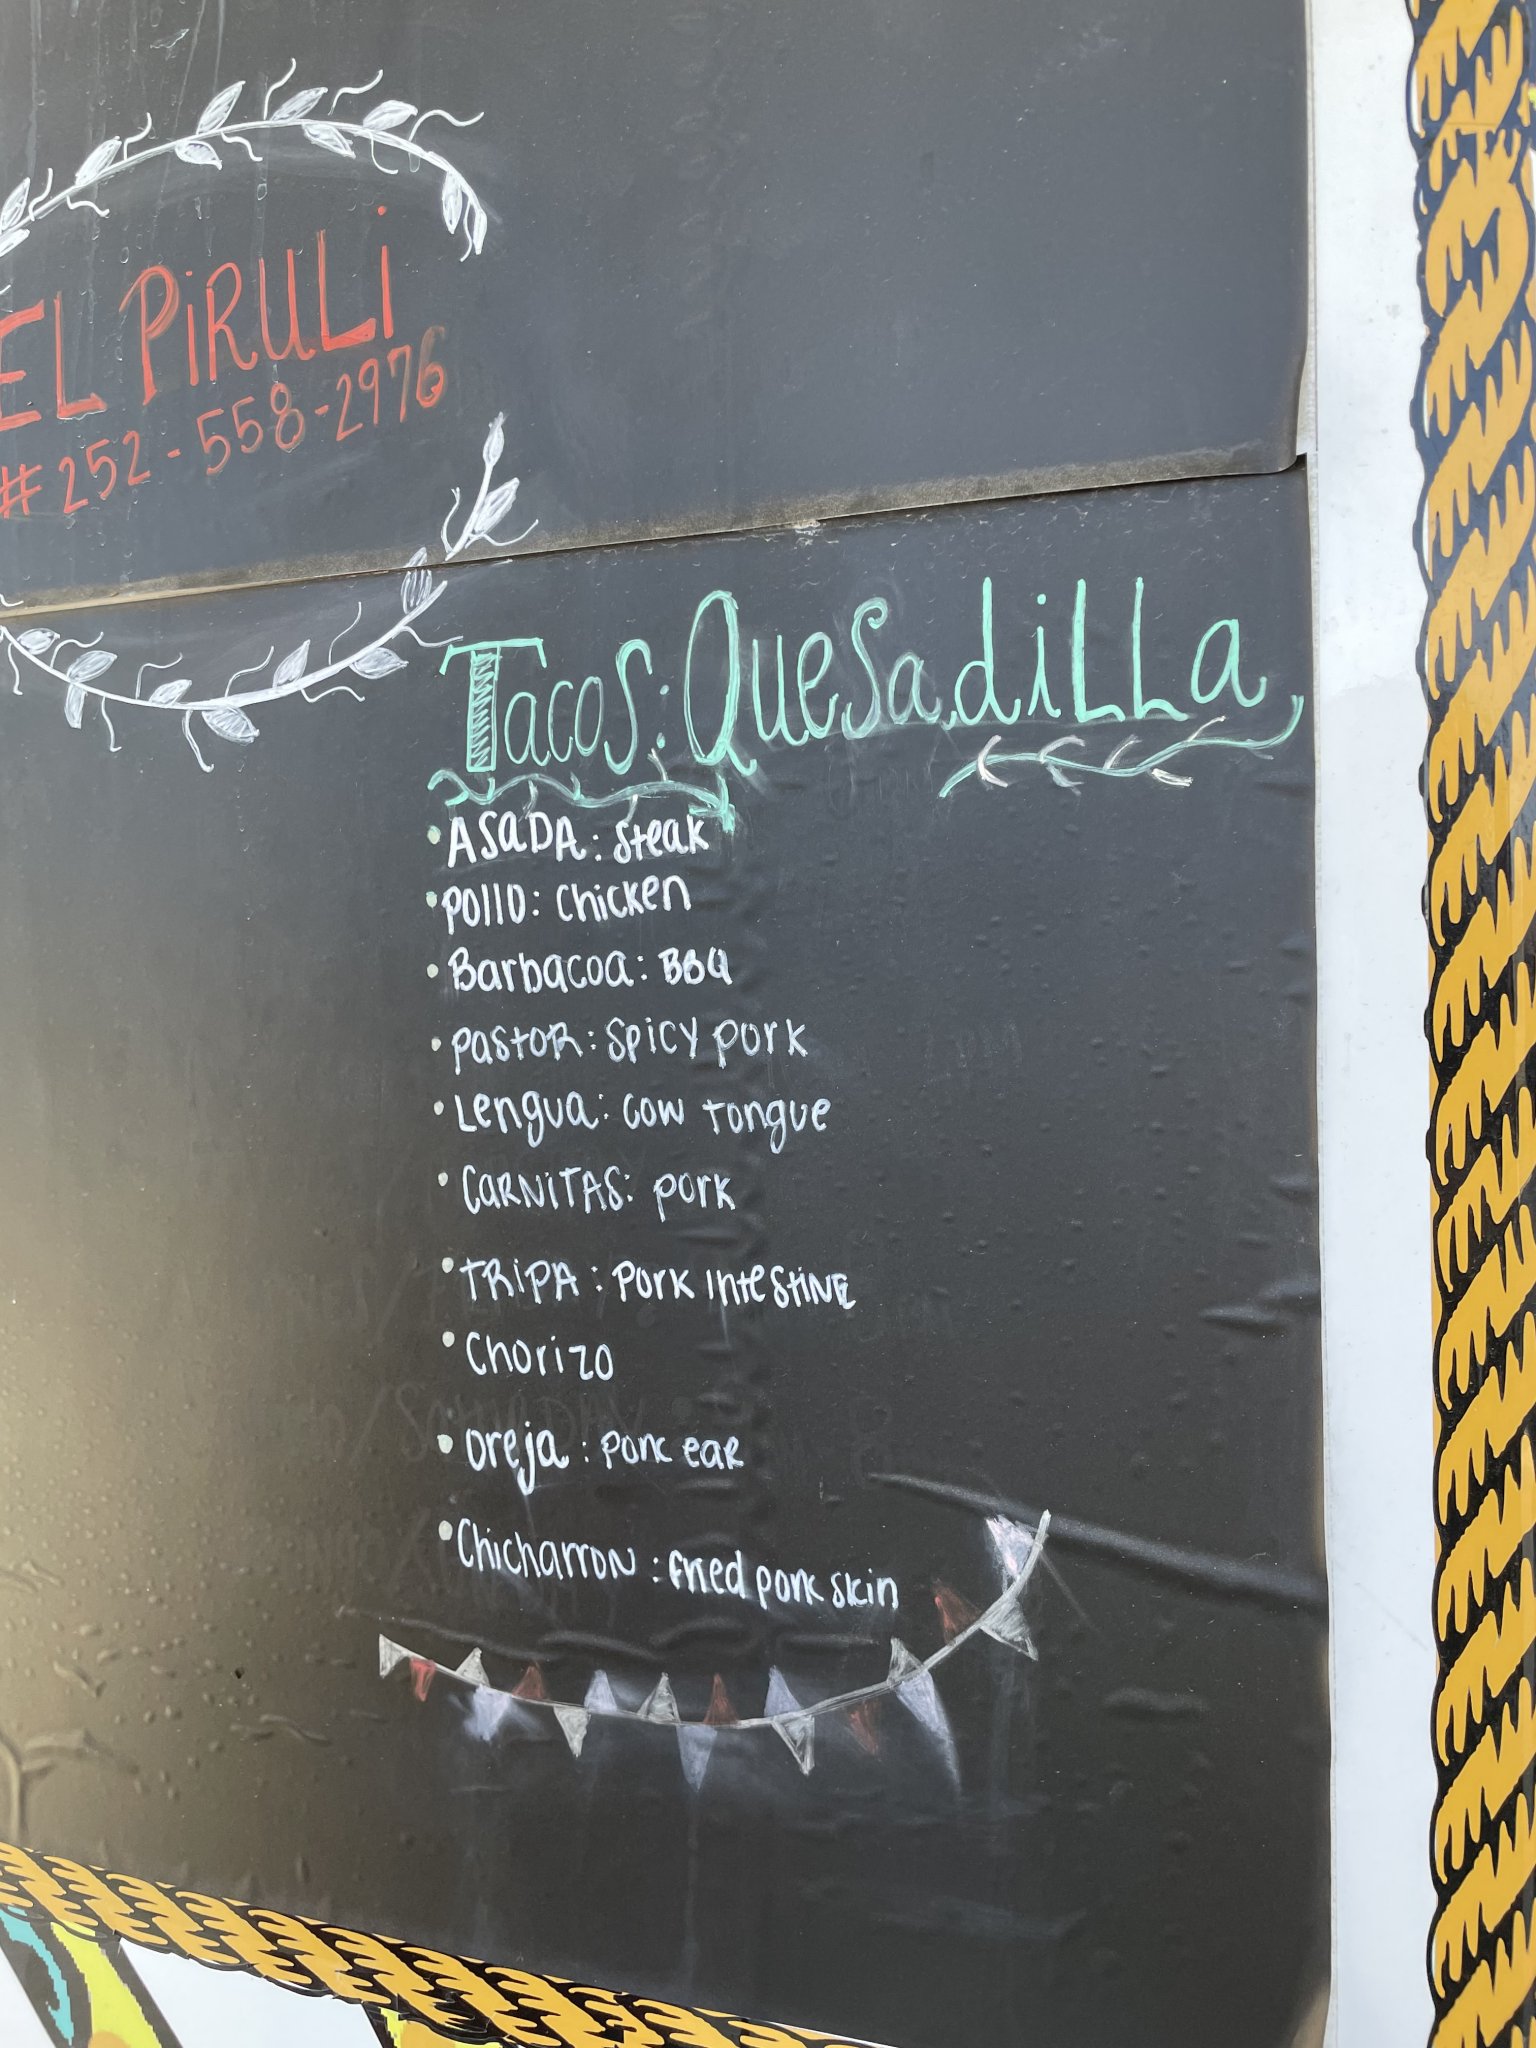 EL PiRULi
#252-558-2976
Tacos: QueSadiLLa
• ASaDA: steak
• Pollo: Chicken
• Barbacoa: BBQ
• PastoR: SPicy pork
• Lengua: cow tongue
• CaRNiTAS: pork
• TRiPA: Pork intestiNE
• Chorizo
• oreja: Pork eaR
• ChicharroN: fried pork skin